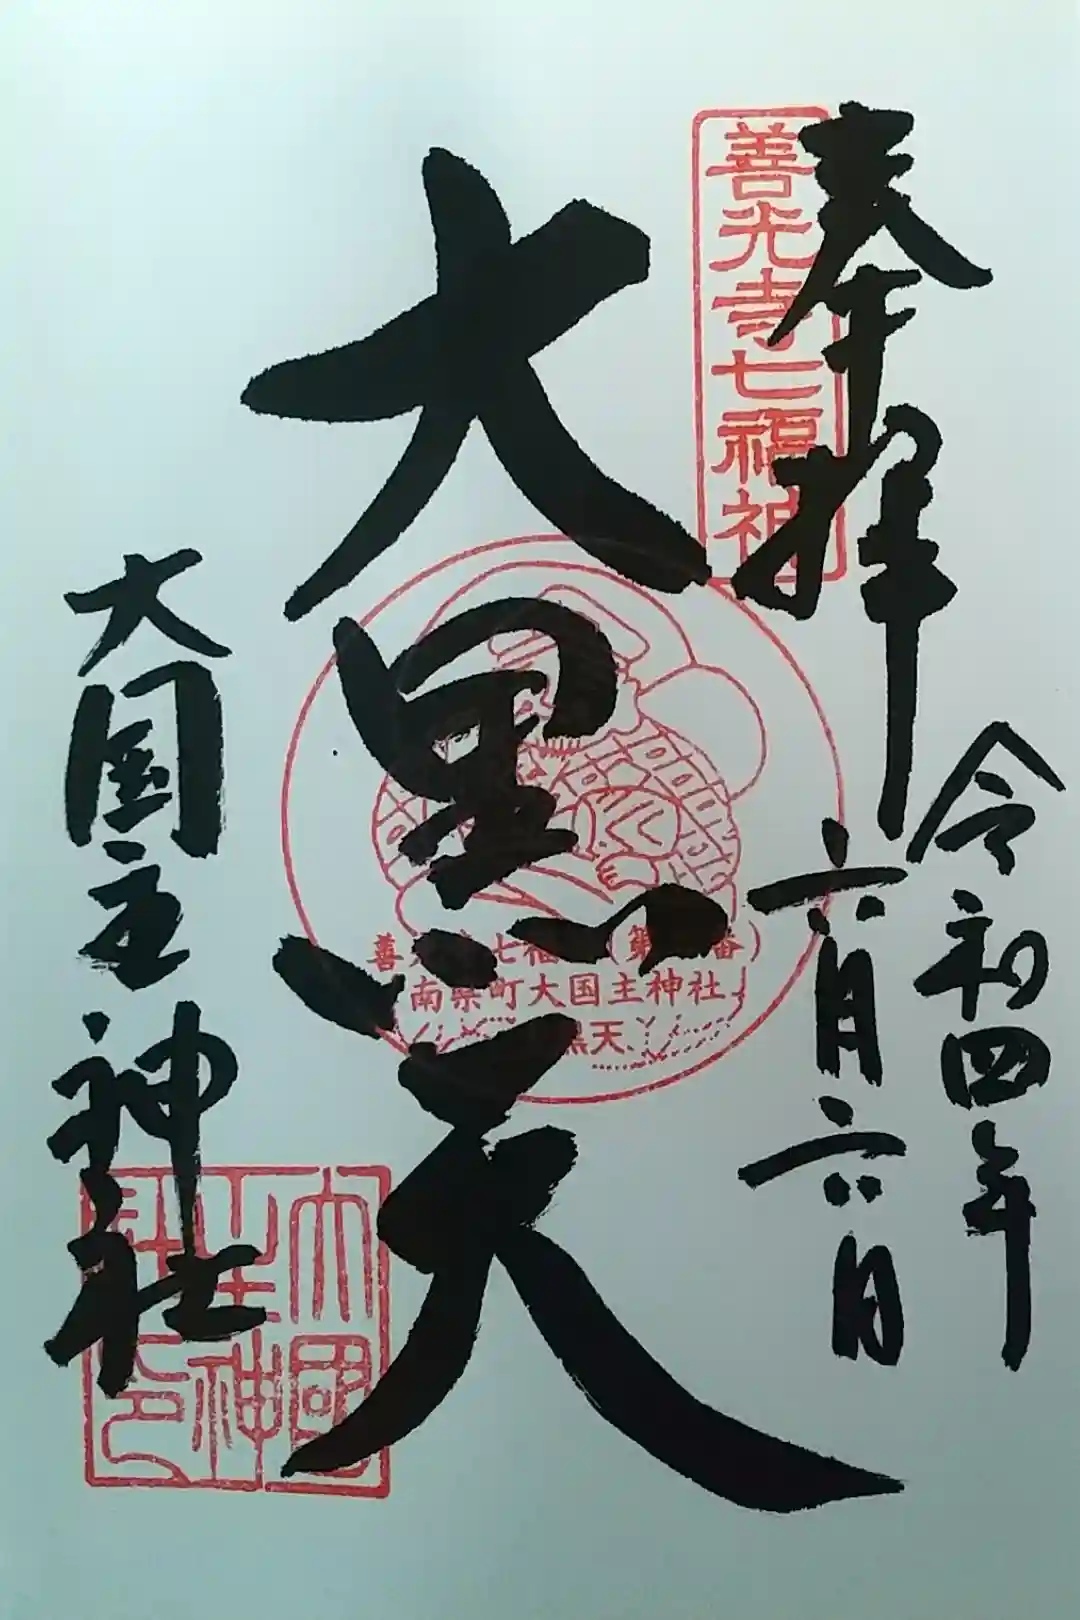 奉拝
令和四年
六月六日
善光寺七福神
大黒天
善光寺七福神（第 番）
南県町大国主神社
大黒天
大国主神社
大國主神社之印